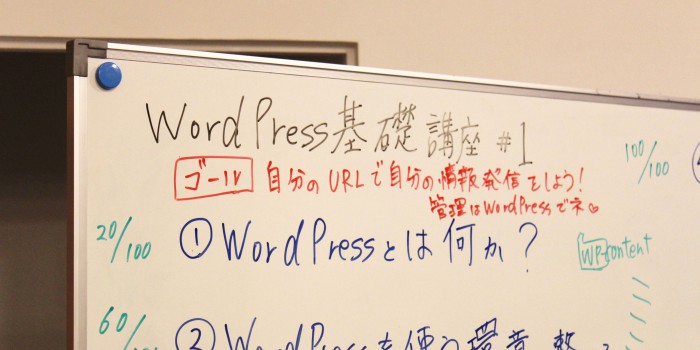 WordPress基礎講座 #1
ゴール 自分のURLで自分の情報発信をしよう!
管理はWordPressでネ
100/100
20/100 ① WordPressとは何か?
WP-content
60/100 ② WordPressを使う環境